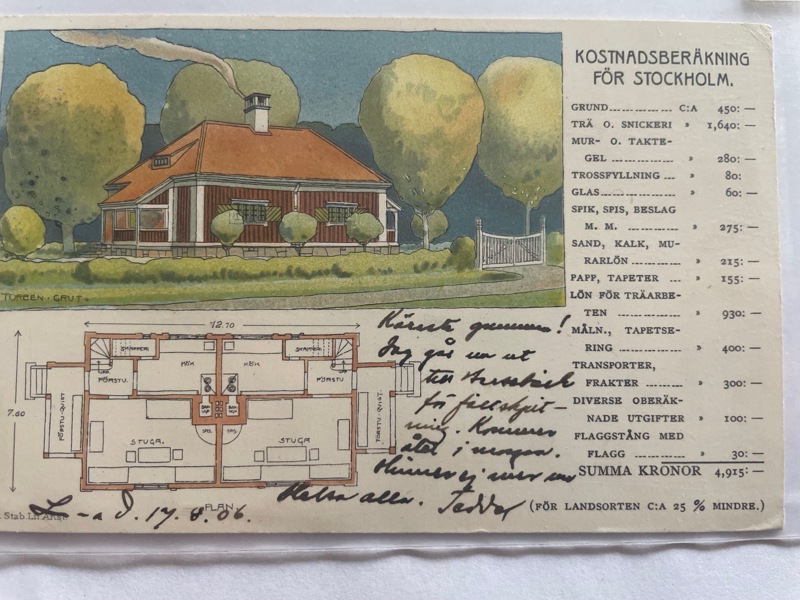 KOSTNADSBERÄKNING
FÖR STOCKHOLM.
GRUND C:A 450: —
TRÄ O. SNICKERI » 1,640: —
MUR- O. TAKTE-
GEL » 280: —
TROSSFYLLNING » 80: —
GLAS » 60: —
SPIK, SPIS, BESLAG
M. M. » 275: —
SAND, KALK, MU-
RARLÖN » 215: —
PAPP, TAPETER » 155: —
LÖN FÖR TRÄARBE-
TEN » 930: —
MÅLN., TAPETSE-
RING » 400: —
TRANSPORTER,
FRAKTER » 300: —
DIVERSE OBERÄK-
NADE UTGIFTER » 100: —
FLAGGSTÅNG MED
FLAGG » 30: —
SUMMA KRONOR 4,915: —
(FÖR LANDSORTEN C:A 25 % MINDRE.)
TORBEN · GRUT ·
12.70
7.60
SKAFFERI
KÖK
KÖK
SKAFFERI
UPP
UPP
FÖRSTU.
FÖRSTU
FÖRSTU-QVIST
FÖRSTU-QVIST
SPIS
SPIS
STUGA.
STUGA
PLAN
Käraste gumman!
Jag går nu ut
till
för fältskjut-
ning. Kommer
åter i morgon.
Hinner ej mer nu
Helsa alla.
17. 8. 06.
Stab. Lit. Anst.